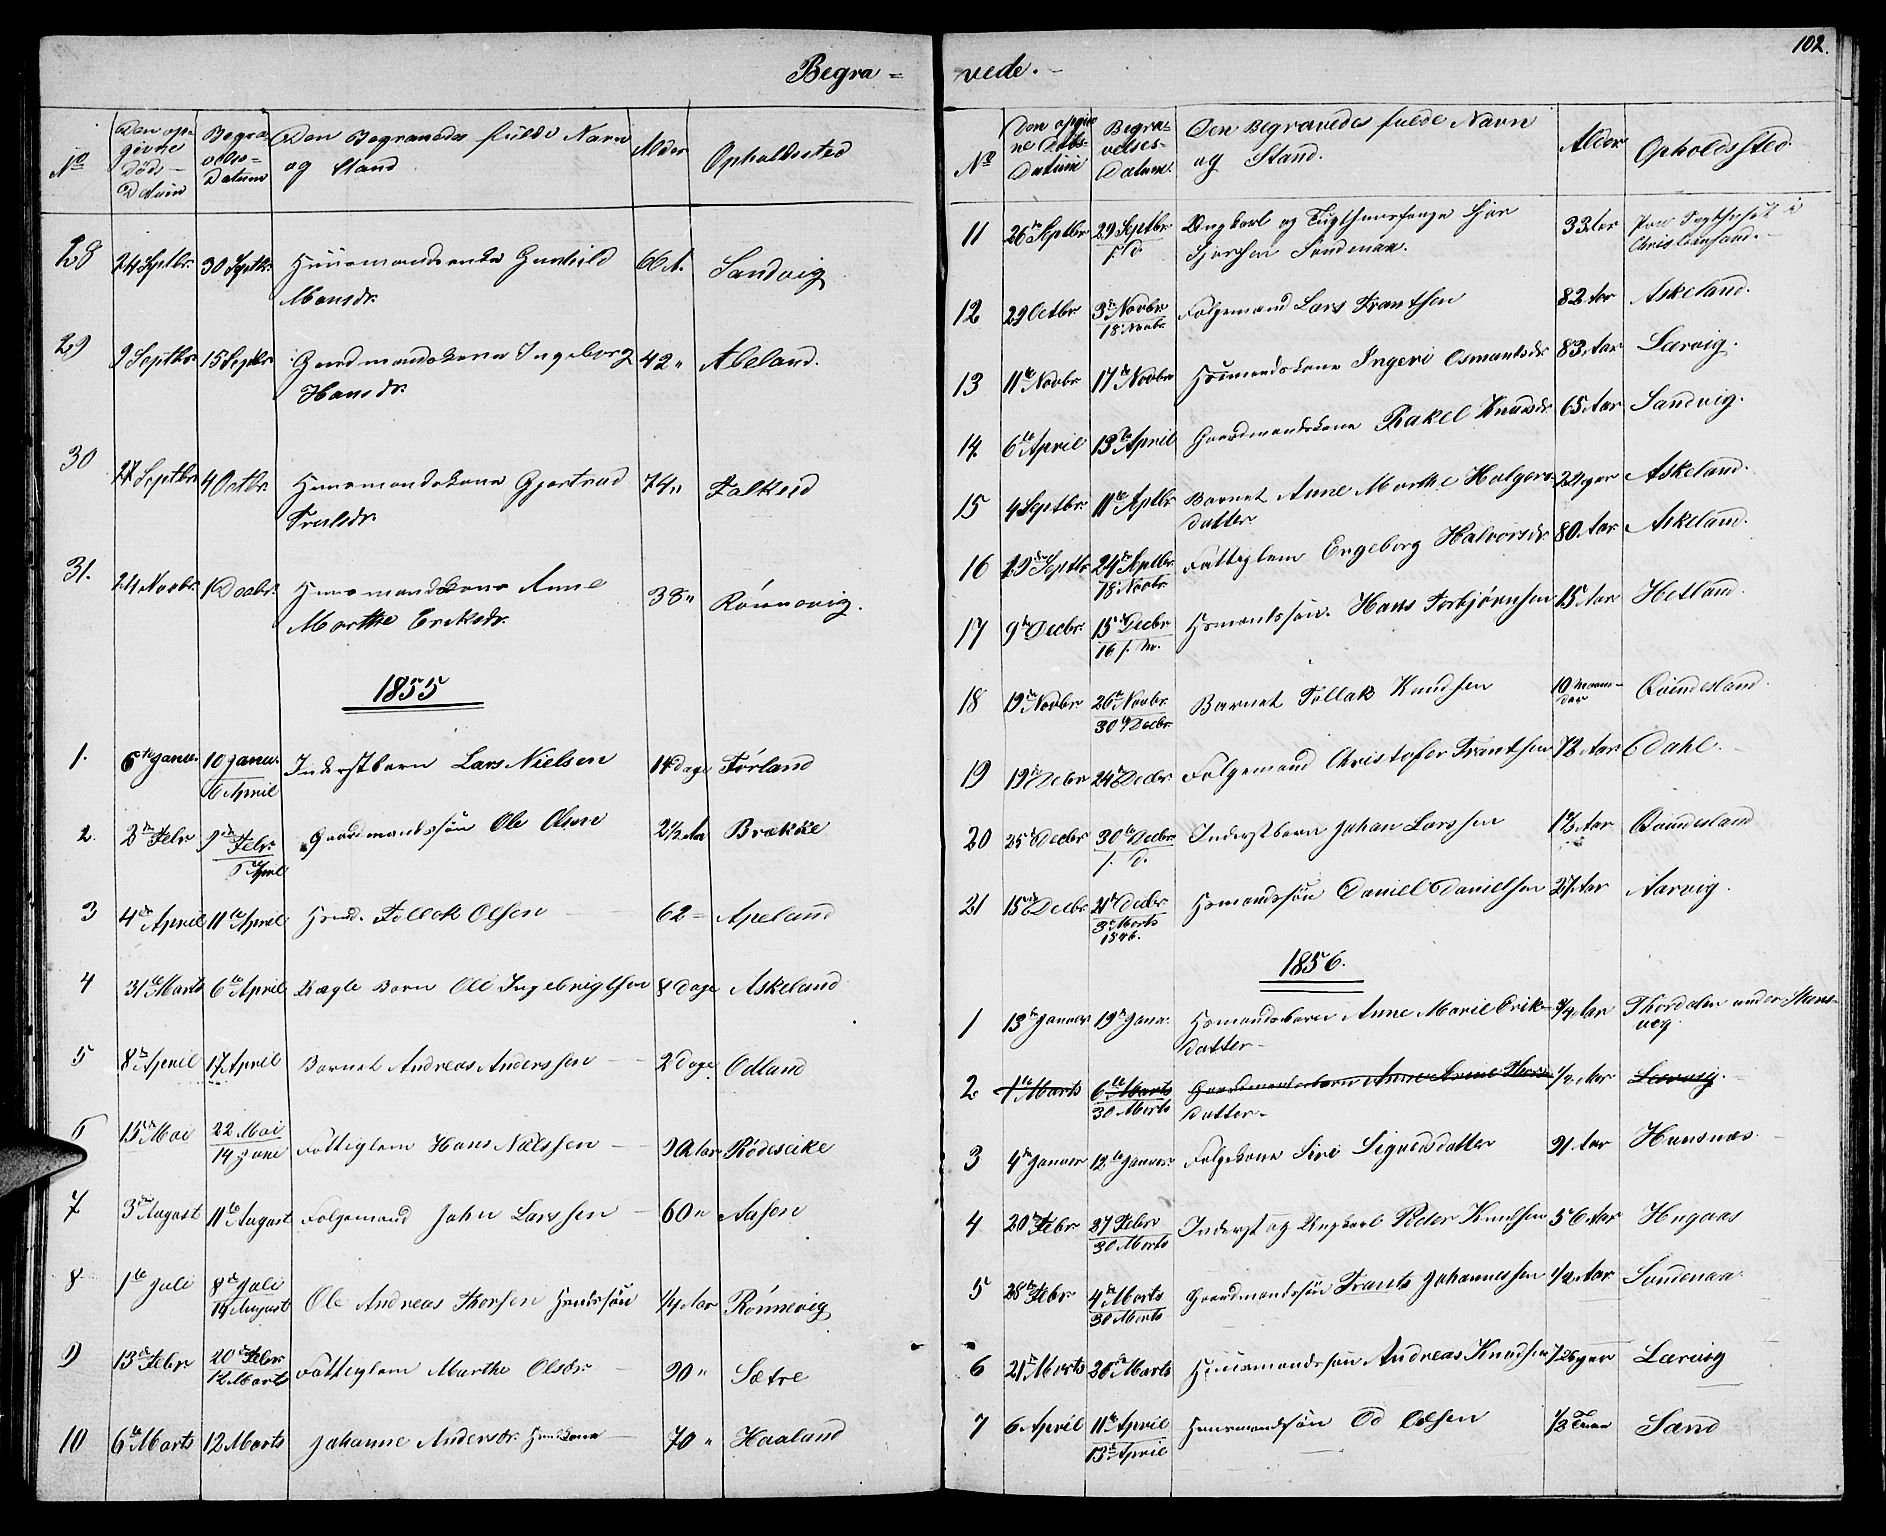 Begra=
No Den opgivne Døds-Datum Begravelse=Datum Den Begravedes fulde Navn og Stand Alder Opholdssted
28 24 Septbr. 30 Septbr. Huusmandsenke Gunhild Monsdr. 66 A. Sandvig
29 9 Septbr. 15 Septbr. Gaardmandskone Ingeborg Hansdr. 42 " Aleland.
30 27 Septbr. 4 Octbr. Huusmandskone Gjertrud Trulsdr. 74 " Falkeid
31. 24 Novbr. 1 Decbr. Huusmandskone Anne Marthe Eriksdr. 38 " Rønnevig.
1855
1. 6te Januar 10 Januar. 6 April Inderstbarn Lars Nielsen 14 dage Førland
2. 2den Febr. 9de Febr. 5 April Gaardmandssøn Ole Olsen 2 1/2 Aar Brække
3 4de April 11te April Hmd. Tollak Olsen 62 - Apeland
4 31te Marts 6te April Uægte Barn Ole Ingebrigtsen 8 Dage Askeland
5 8de April 17 April Barnet Andreas Anderssen 2 Dage Odland
6 15de Mai 22 Mai 14 June Fattiglem Hans Nielssen 9 Aar Rødeseike
7 3de August 11te August Folgemand John Larssen 60 " Aasen
8 1te Juli 8de Juli 14 August Ole Andreas Thorsen Hmdssøn 1/4 Aar Rønnevig
9 13de Febr 20de Febr 12 Marts Fattiglem Marthe Olsdr 90 " Sætre
10 6te Marts 12 Marts Johanne Andersdr. Hmdkone 70 " Haaland
102.
vede.
No Den opgivne Døds-Datum Begravelses-Datum. Den Begravedes fulde Navn og Stand. Alder Opholdssted.
11 26de Septbr 29 Septbr Ungkarl og Tugthuusfange Sjur Sjursen Søndenaa. 33 Aar Paa Tugthuset i Christiansand.
12 29 Octbr 3de Novbr 18 Novbr. Folgemand Lars Frantsen 82 Aar Askeland.
13 11te Novbr 17de Novbr Hsmandskone Ingeri Osmundsdr 83 Aar Lærvig.
14. 6te April 13de April Gaardmandskone Rakel Knudsdr 65 Aar Sandvig.
15 4 Septbr. 11te Septbr Barnet Anne Marthe Holgersdatter 22 Uger Askeland.
16 19de Septbr 24de Septbr. 18 Novbr. Fattiglem Engeborg Halvorsdr 80 Aar Askeland.
17 9de Decbr. 15de Decbr Hsmandssøn. Hans Torbjørnsen 15 Aar Hetland.
18 19de Novbr 26te Novbr. 30 Decbr. Barnet Tollak Knudsen 10 Maaneder Qvindesland.
19 19de Decbr 24de Decbr Folgemand Christofer Frantsen 72 Aar Dahl.
20 25de Decbr 30te Decbr Inderstbarn Johan Larssen 1 1/2 Aar Qvindesland
21 15de Decbr 21de Decbr 3de Marts Hsmandssøn Daniel Danielsen 27 Aar Aarvig.
1856.
1 13de Januar 19de Janr. Hsmandsbarn Anne Marie Eriksdatter 3/4 Aar Thordalen under Stensvig.
2 1te Marts 6te Marts 30 Marts Gaardmandsbarn Anne datter. 1/2 Aar Lærvig.
3 4de Januar 12te Januar. Folgekone Siri Sigurdsdatter 91 Aar Hunsnæs.
4 20de Febr 27 Febr 30 Marts Inderst og Ungkarl Peder Knudsen 56 Aar Hugaas
5 28de Febr 4de Marts 30 Marts Gaardmandssøn Frants Johannessen 1/2 Aar Søndenaa
6 21de Marts 26de Marts Huusmandssøn Andreas Knudsen Uger Lærvig
7 6 April 11te April 13de April Huusmandssøn Od Olsen Sand